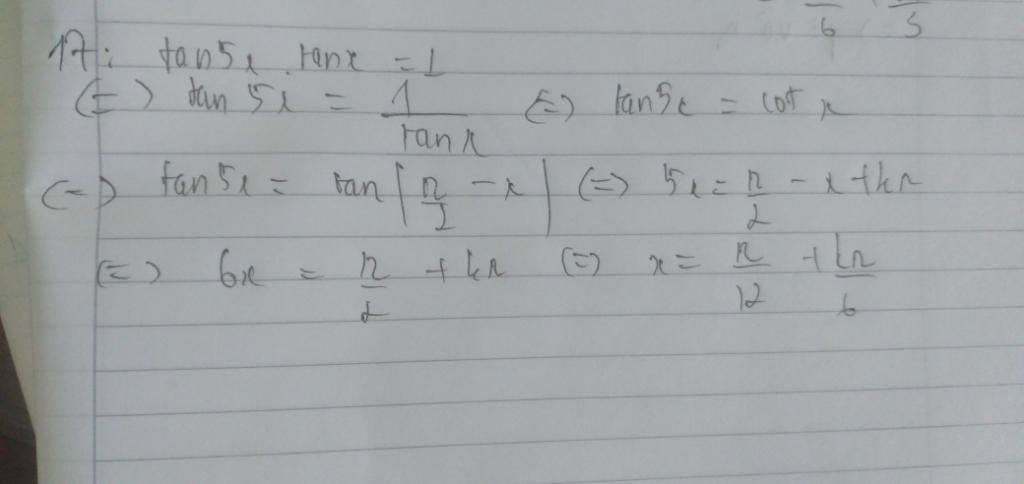 6 3
17: tan5x . tanx = 1
(=) tan 5x = 1/tan x (=) tan5x = cot x
(=) tan5x = tan(π/2 - x) (=) 5x = π/2 - x + kπ
(=) 6x = π/2 + kπ (=) x = π/12 + kπ/6